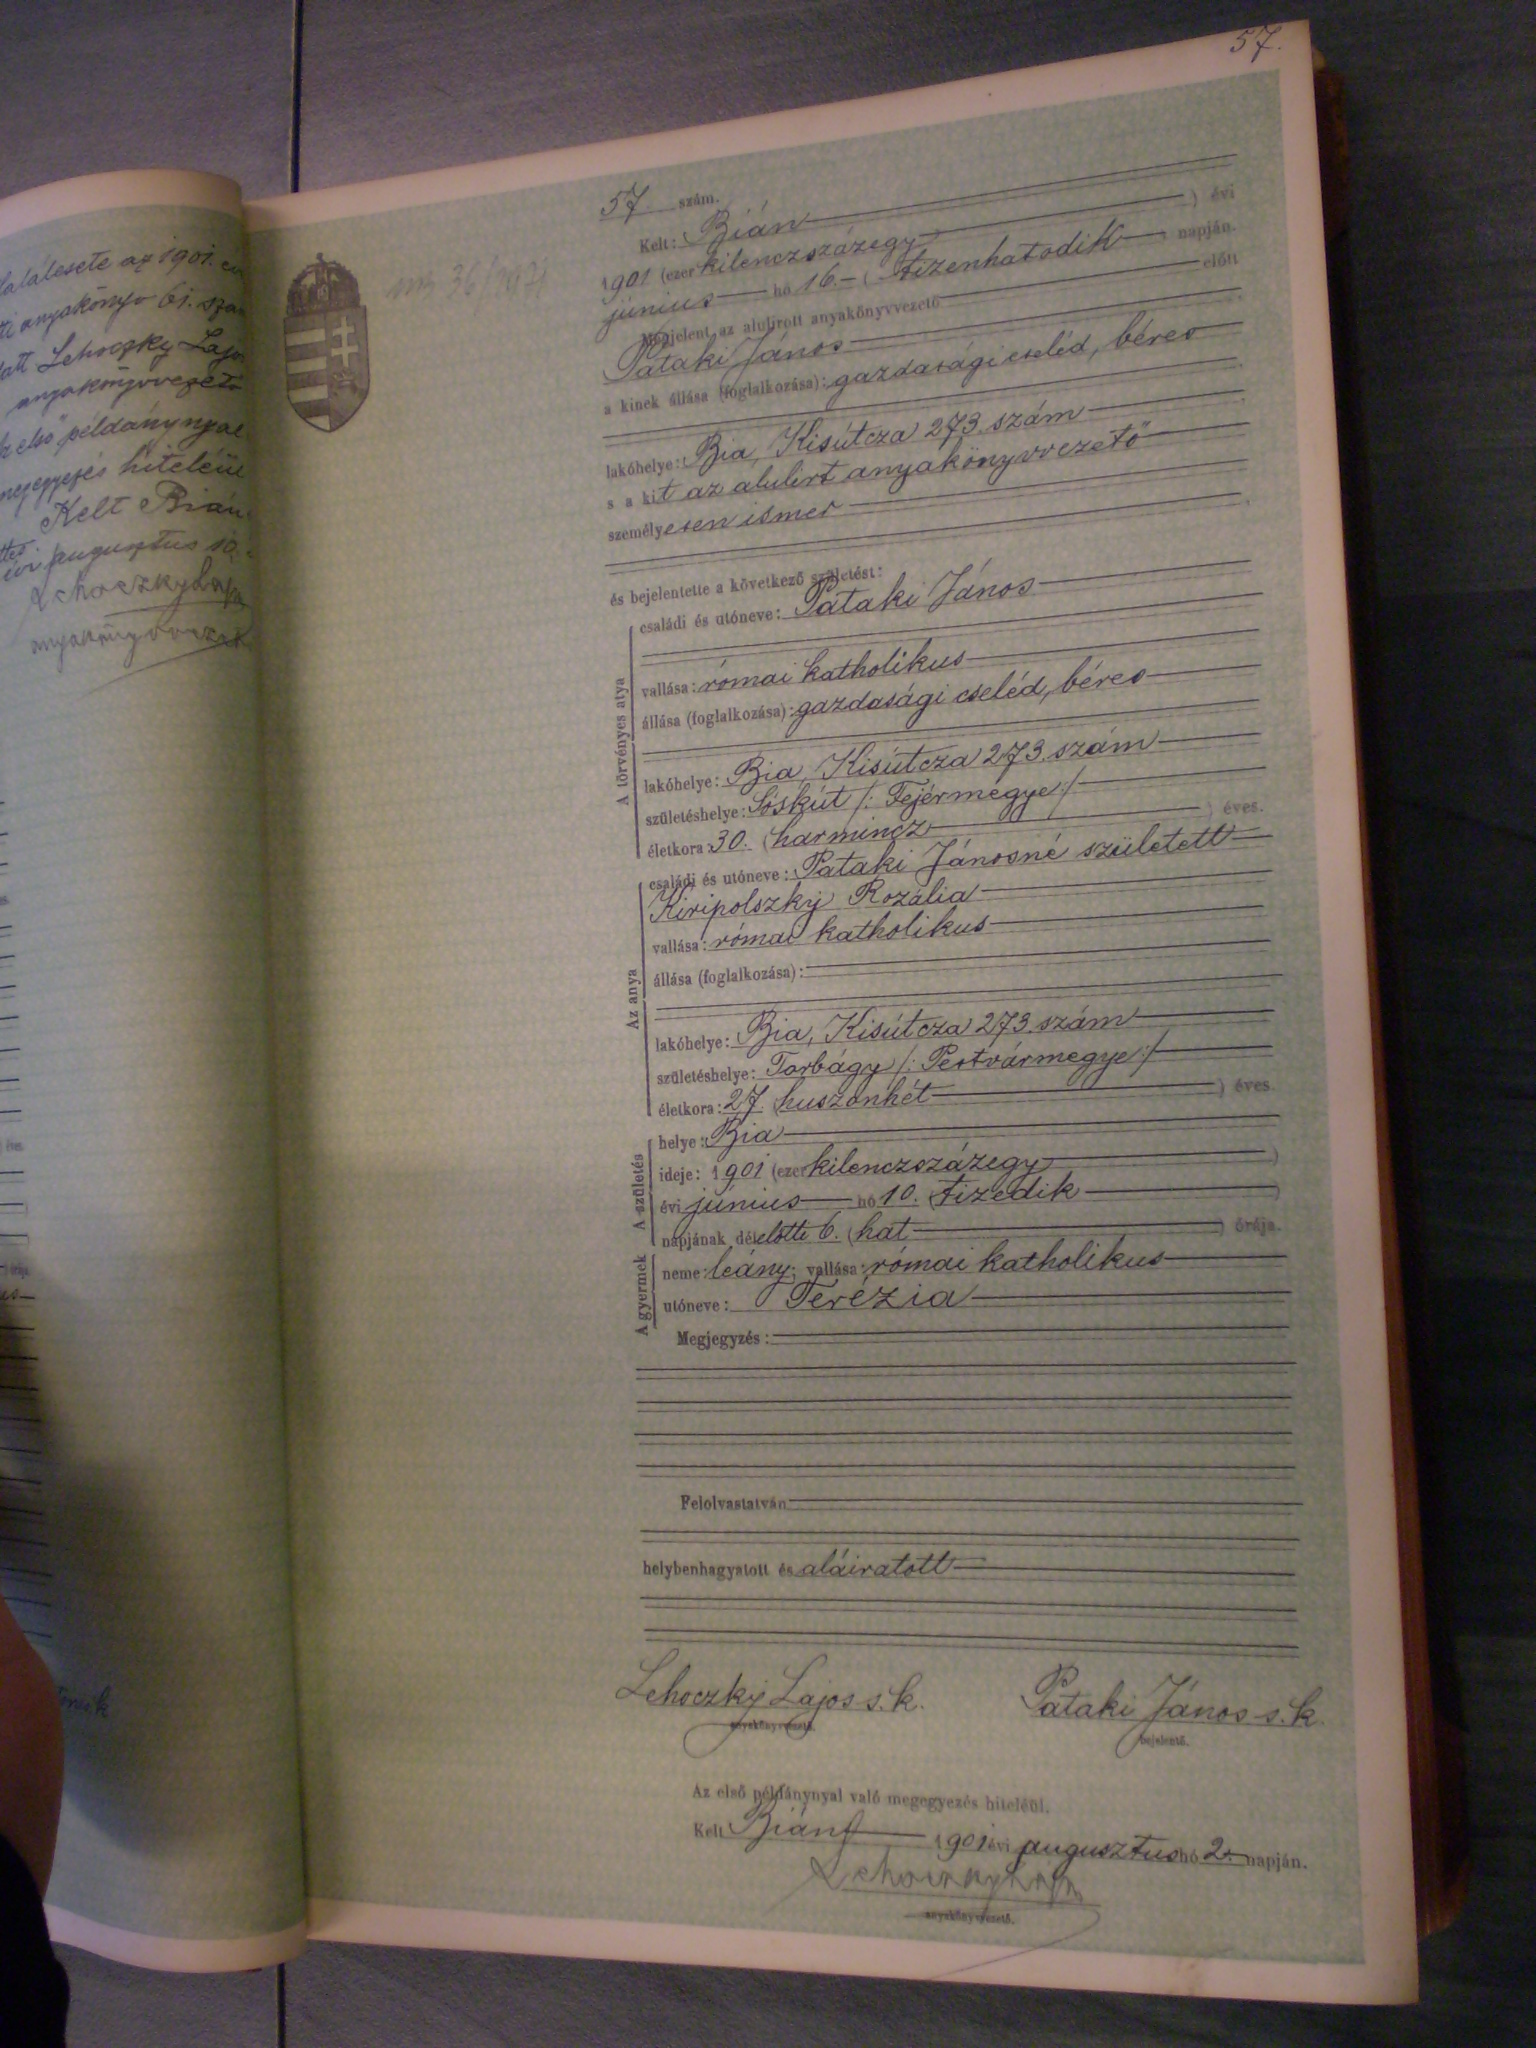 57.
halálesete az 1901. évi
anyakönyv 61. szám
alatt Lehoczky Lajos
anyakönyvvezető
első példánynyal
megegyezés hiteléül
Kelt Bián
évi augusztus 10.
Lehoczky Lajos
anyakönyvvezető
57 szám.
Kelt: Bián ) évi
1901 (ezer kilenczszázegy
június hó 16.- ( tizenhatodik ) napján.
Megjelent az alulírott anyakönyvvezető előtt
Pataki János
a kinek állása (foglalkozása): gazdasági cseléd, béres
lakóhelye: Bia, Kisútcza 273. szám
s a kit az alulírt anyakönyvvezető
személyesen ismer
és bejelentette a következő születést:
A törvényes atya
családi és utóneve: Pataki János
vallása: római katholikus
állása (foglalkozása): gazdasági cseléd, béres
lakóhelye: Bia, Kisútcza 273. szám
születéshelye: Sóskút /: Fejérmegye :/
életkora: 30. (harmincz ) éves.
Az anya
családi és utóneve: Pataki Jánosné született
Kiripolszky Rozália
vallása: római katholikus
állása (foglalkozása):
lakóhelye: Bia, Kisútcza 273. szám
születéshelye: Torbágy /: Pestvármegye :/
életkora: 27. (huszonhét ) éves.
A születés
helye: Bia
ideje: 1901 (ezer kilenczszázegy )
évi június hó 10. (tizedik )
napjának délelőtti 6. (hat ) órája.
A gyermek
neme: leány; vallása: római katholikus
utóneve: Terézia
Megjegyzés:
Felolvastatván
helybenhagyatott és aláiratott
Lehoczky Lajos s.k. Pataki János s.k.
anyakönyvvezető. bejelentő.
Az első példánynyal való megegyezés hiteléül.
Kelt Bián 1901 évi augusztus hó 2. napján.
Lehoczky Lajos
anyakönyvvezető.